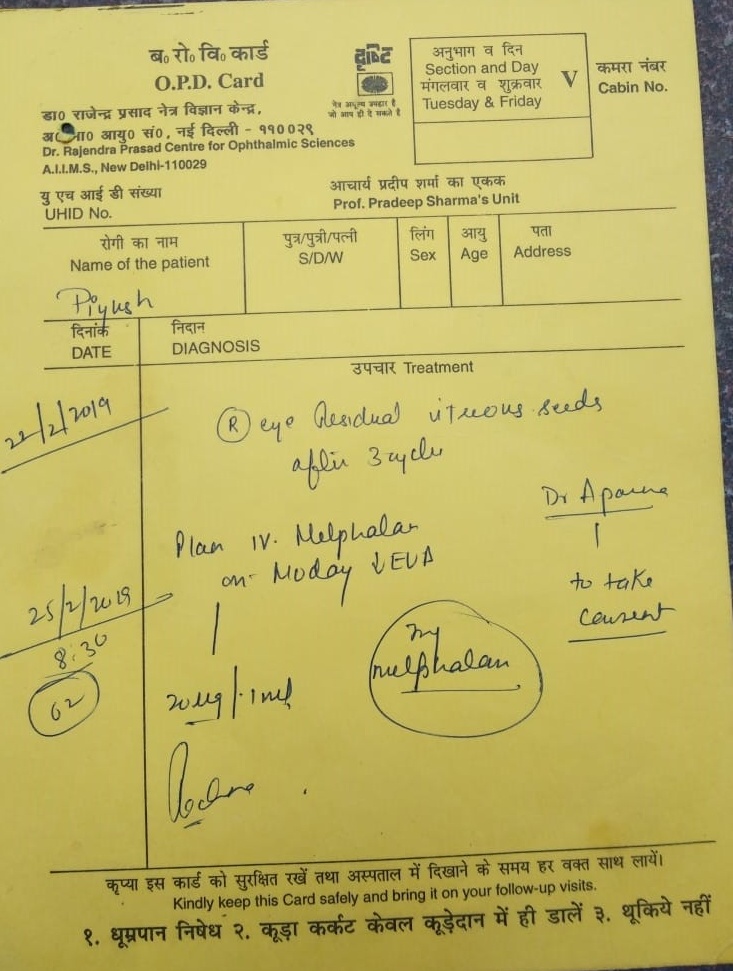 ब० रो० वि० कार्ड
O.P.D. Card
डा० राजेन्द्र प्रसाद नेत्र विज्ञान केन्द्र,
अ० भा० आयु० सं०, नई दिल्ली - ११००२९
Dr. Rajendra Prasad Centre for Ophthalmic Sciences
A.I.I.M.S., New Delhi-110029
दृष्टि
नेत्र अमूल्य उपहार है
जो आप ही दे सकते है
अनुभाग व दिन
Section and Day
मंगलवार व शुक्रवार
Tuesday & Friday
V
कमरा नंबर
Cabin No.
यु एच आई डी संख्या
UHID No.
आचार्य प्रदीप शर्मा का एकक
Prof. Pradeep Sharma's Unit
रोगी का नाम
Name of the patient
पुत्र/पुत्री/पत्नी
S/D/W
लिंग
Sex
आयु
Age
पता
Address
Piyush
दिनांक
DATE
निदान
DIAGNOSIS
उपचार Treatment
22/2/2019
(R) eye Residual vitreous seeds
after 3 cycle
Dr Aparna
Plan IV. Melphalan
on Moday ↓EUA
to take
consent
25/2/2019
8:30
02
Inj
melphalan
20 ug/.1ml
कृप्या इस कार्ड को सुरक्षित रखें तथा अस्पताल में दिखाने के समय हर वक्त साथ लायें।
Kindly keep this Card safely and bring it on your follow-up visits.
१. धूम्रपान निषेध २. कूड़ा कर्कट केवल कूड़ेदान में ही डालें ३. थूकिये नहीं